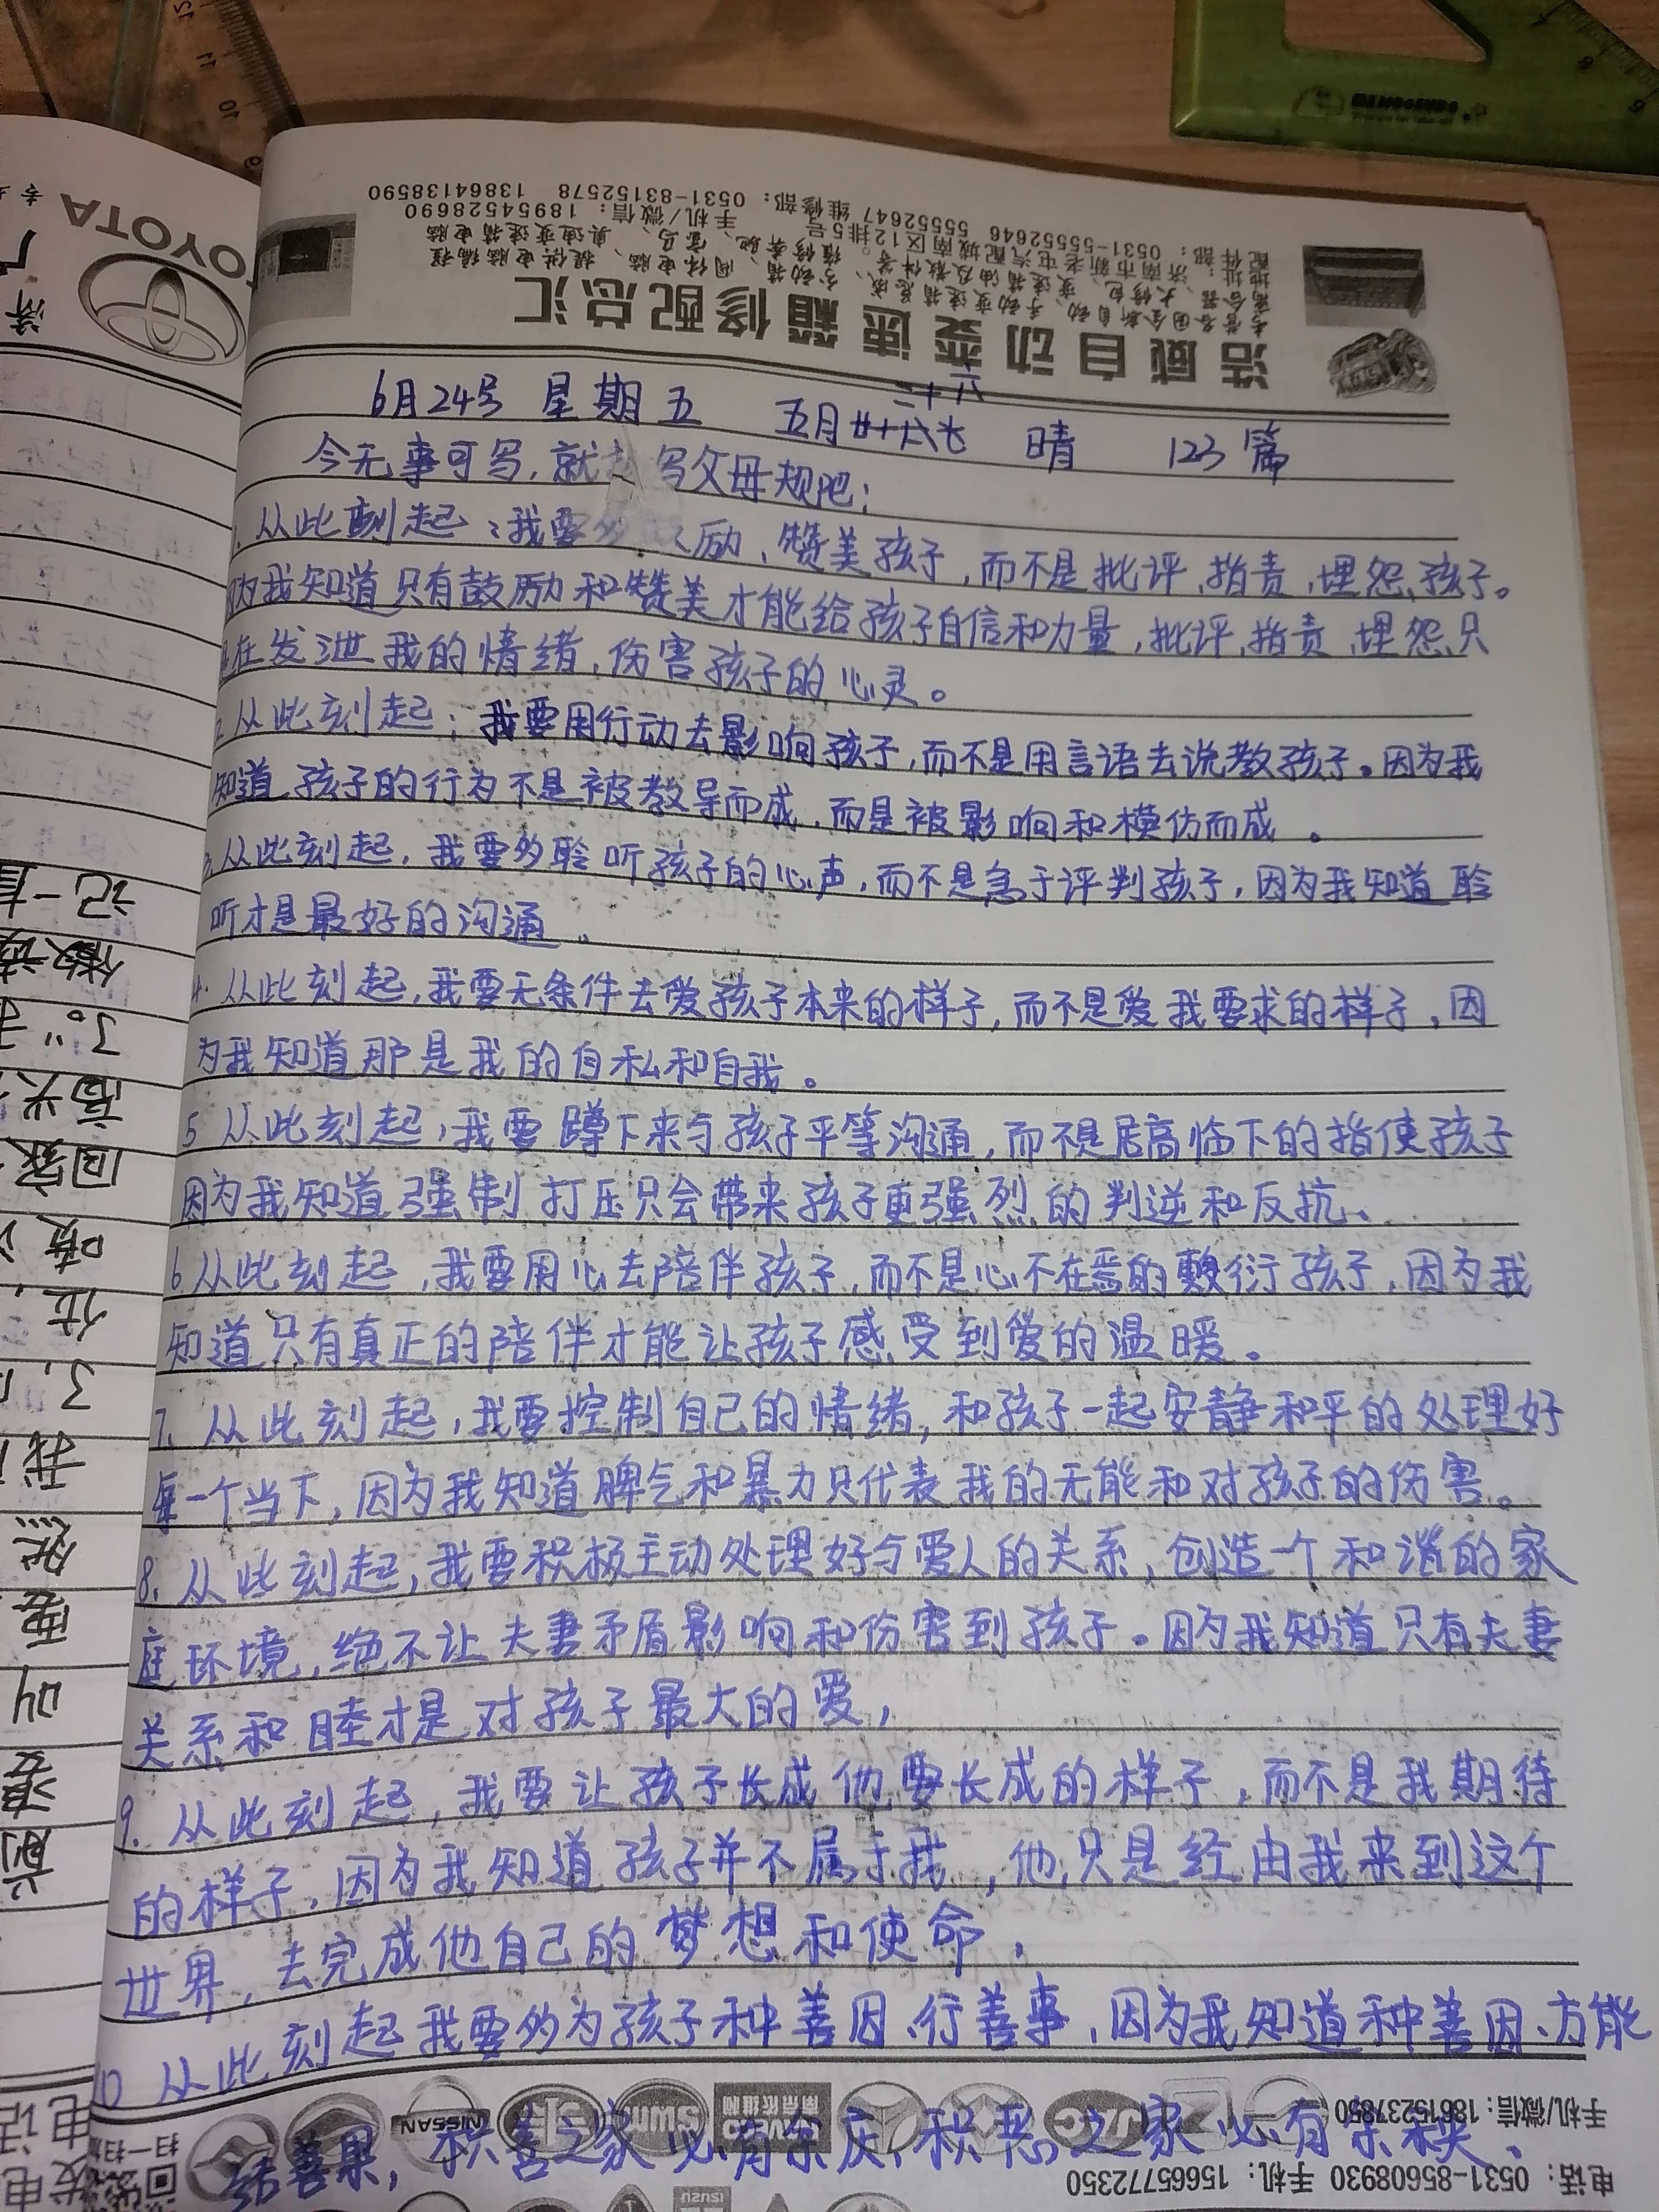 浩威自动变速箱修配总汇
配件部：0531-55552646 55552647 维修部：0531-83152578 13864138590
手机/微信：18954528690
TOYOTA
6月24号 星期五 五月二十六 晴 123篇
今无事可写，就写父母规吧：
1.从此刻起：我要多 励、赞美孩子，而不是批评、指责、埋怨、孩子。
因为我知道只有鼓励和赞美才能给孩子自信和力量，批评、指责、埋怨、只
是在发泄我的情绪，伤害孩子的心灵。
2.从此刻起：我要用行动去影响孩子，而不是用言语去说教孩子。因为我
知道孩子的行为不是被教导而成，而是被影响和模仿而成。
3.从此刻起，我要多聆听孩子的心声，而不是急于评判孩子，因为我知道聆
听才是最好的沟通。
4.从此刻起，我要无条件去爱孩子本来的样子，而不是爱我要求的样子，因
为我知道那是我的自私和自我。
5 从此刻起，我要蹲下来与孩子平等沟通，而不是居高临下的指使孩子
因为我知道强制打压只会带来孩子更强烈的判逆和反抗、
6 从此刻起，我要用心去陪伴孩子，而不是心不在焉的敷衍孩子，因为我
知道只有真正的陪伴才能让孩子感受到爱的温暖。
7.从此刻起，我要控制自己的情绪，和孩子一起安静和平的处理好
每一个当下，因为我知道脾气和暴力只代表我的无能和对孩子的伤害。
8.从此刻起，我要积极主动处理好与爱人的关系，创造一个和谐的家
庭环境，绝不让夫妻矛盾影响和伤害到孩子。因为我知道只有夫妻
关系和睦才是对孩子最大的爱，
9.从此刻起，我要让孩子长成他要长成的样子，而不是我期待
的样子，因为我知道孩子并不属于我，他只是经由我来到这个
世界，去完成他自己的梦想和使命，
10 从此刻起我要多为孩子种善因、行善事，因为我知道种善因、方能
结善果，积善之家必有余庆，积恶之家必有余殃、
手机/微信：18615237850
电话：0531-85608930 手机：15665772350
NISSAN
SWM
ISUZU